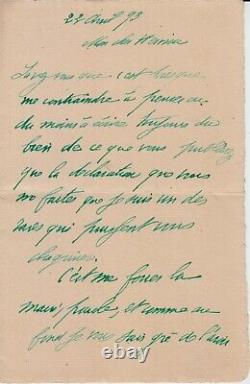 22 Avril 93
Mon cher
Savez vous que c'est presque
me contraindre à penser ou
du moins à écrire toujours du
bien de ce que vous publiez
que la déclaration que vous
me faites que je suis un des
rares qui puissent vous
chagriner.
C'est me forcer la
main, parole, et comme au
fond je me sais gré de l'avoir